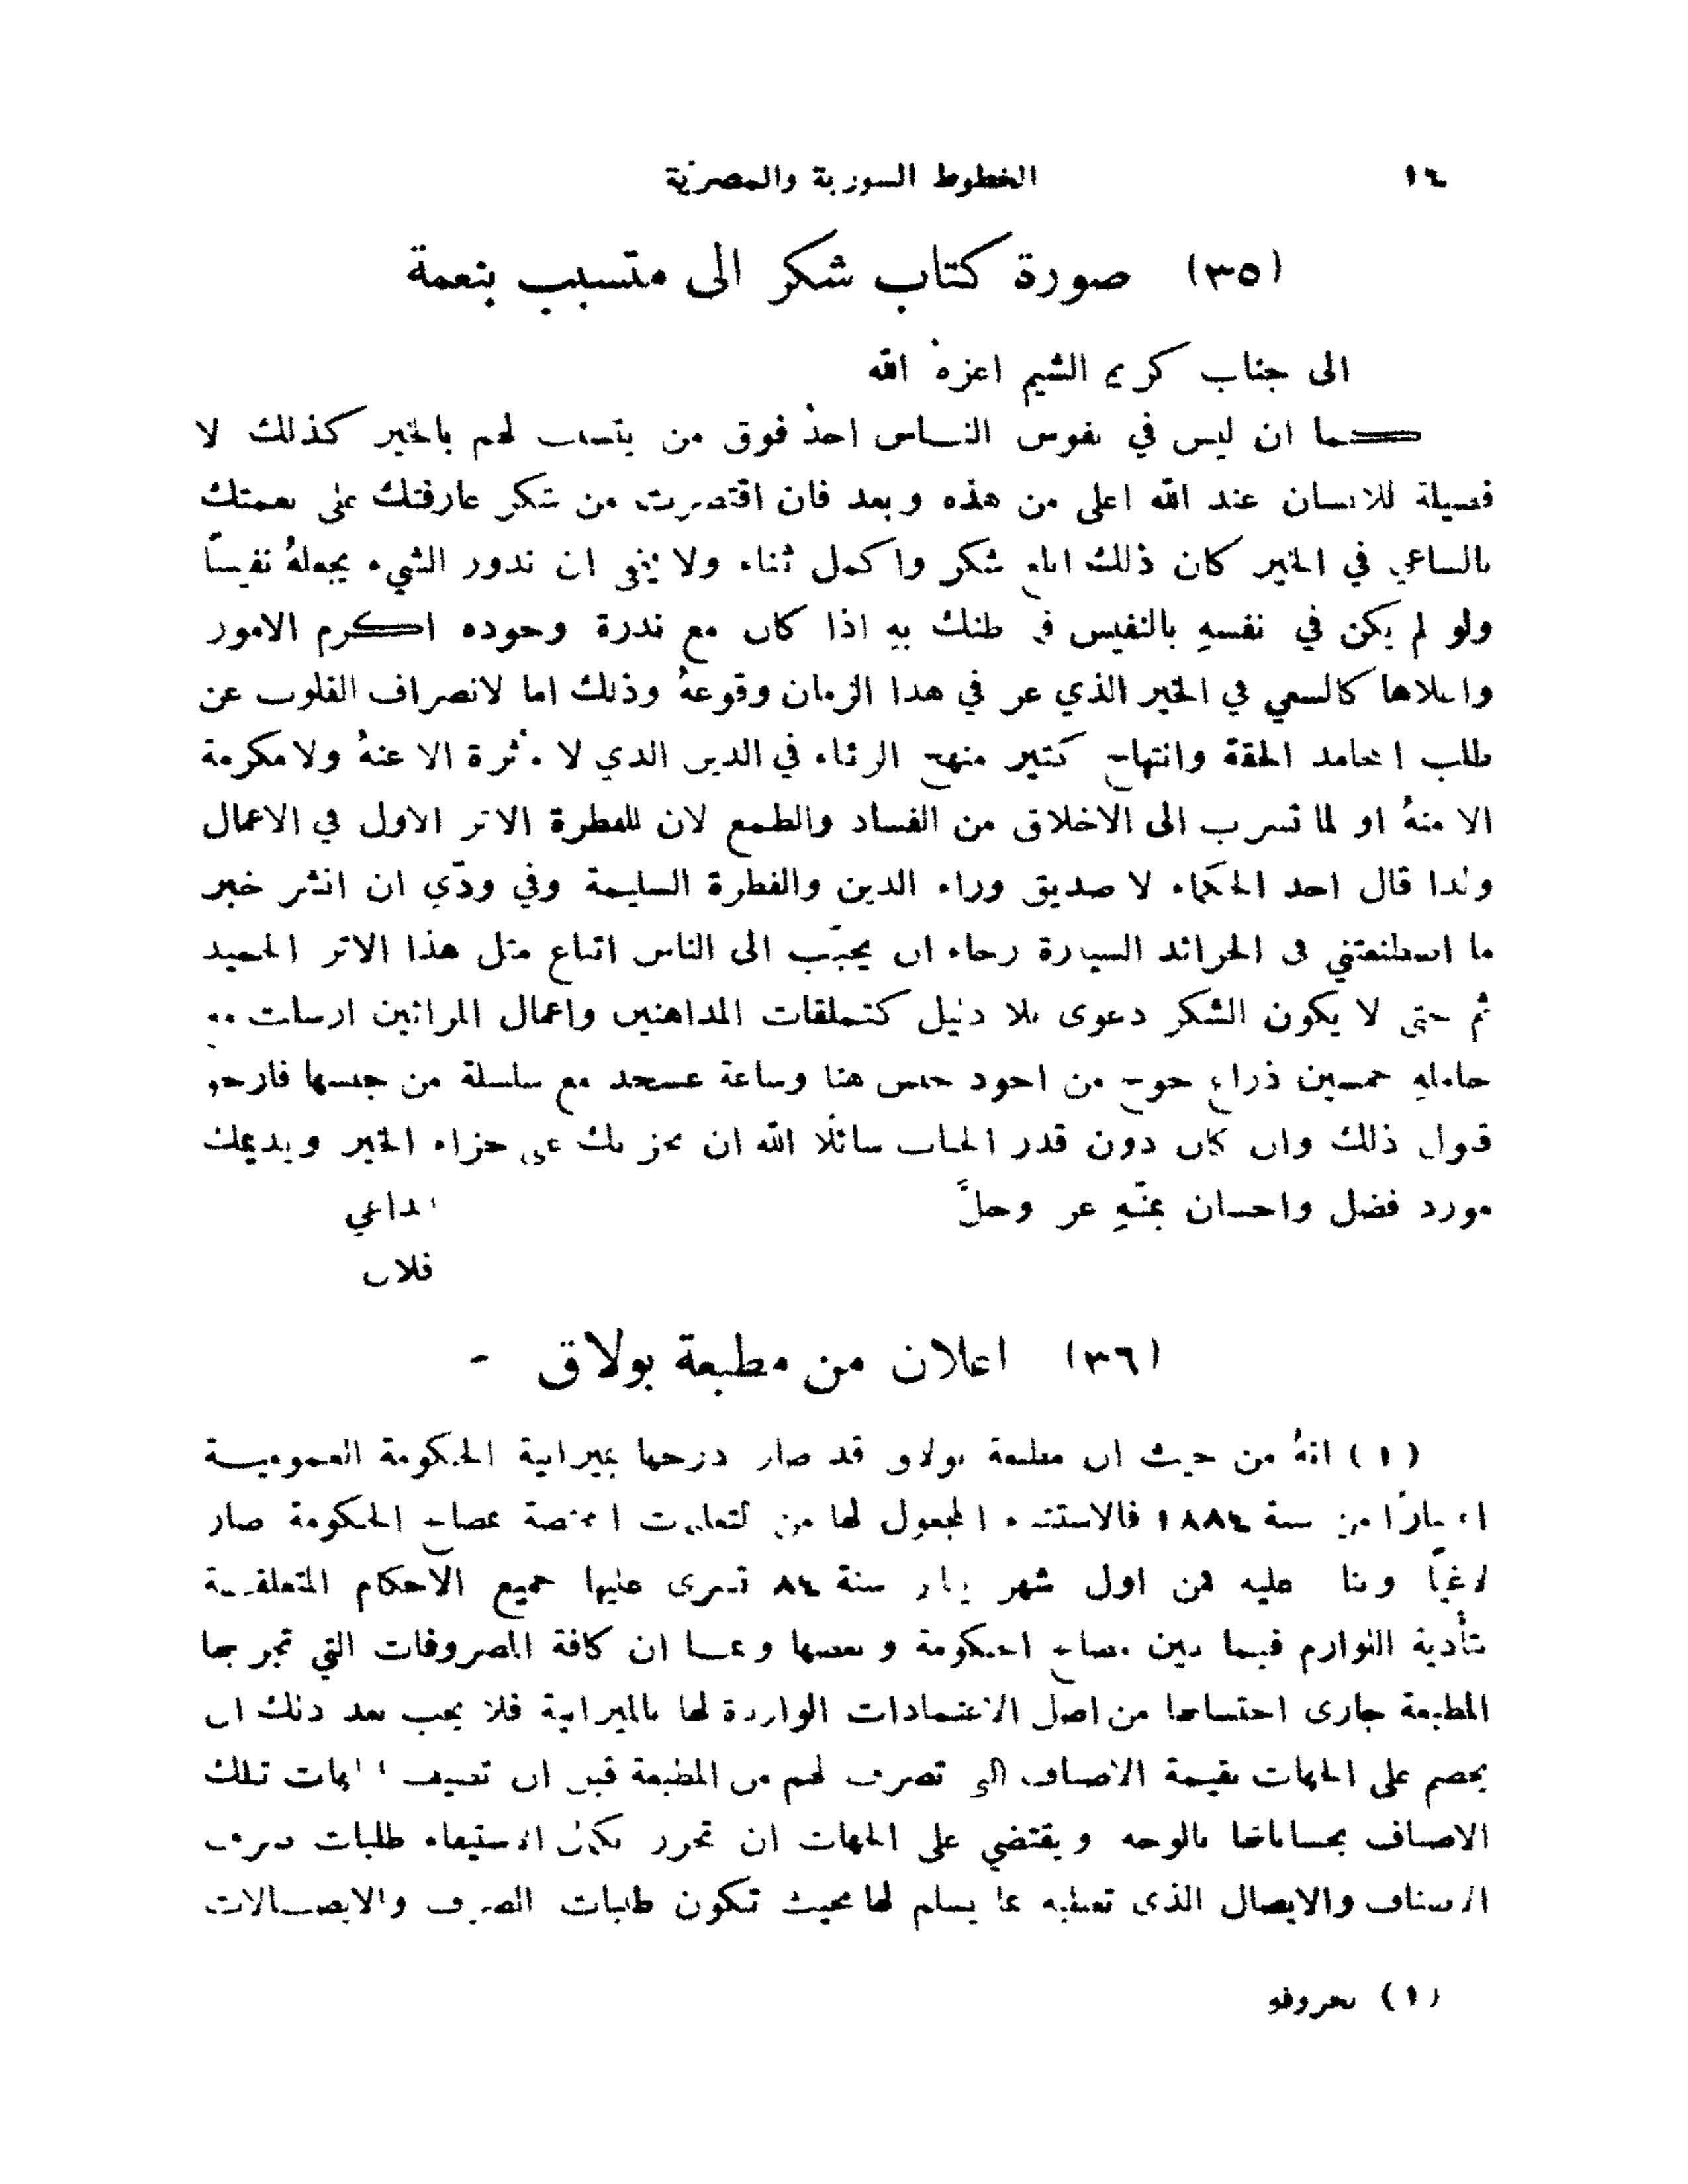 الخطوط السورية والمصرية
(٣٥) صورة كتاب شكر الى متسبب بنعمة
الى جناب كريم الشيم اعزهُ الله
كما ان ليس في نفوس الناس احدٌ فوق من يتسبب لهم بالخير كذلك لا
فضيلة للانسان عند الله اعلى من هذه وبعد فان اقتصرت من شكر عارفتك على نعمتك
بالساعي في الخير كان ذلك ابلغ شكر واكمل ثناء ولا يخفى ان ندور الشيء يجعلهُ نفيسًا
ولو لم يكن في نفسهِ بالنفيس فما ظنك بهِ اذا كان مع ندرة وجوده اكرم الامور
واعلاها كالسعي في الخير الذي عز في هذا الزمان وقوعهُ وذلك اما لانصراف القلوب عن
طلب المحامد الحقة وانتهاج كثير منهج الرئاء في الدين الذي لا مأثرة الا عنهُ ولا مكرمة
الا منهُ او لما تسرب الى الاخلاق من الفساد والطمع لان للفطرة الاثر الاول في الاعمال
ولذا قال احد الحكماء لا صديق وراء الدين والفطرة السليمة وفي ودّي ان انشر خبر
ما اصطنعتني في الجرائد السيارة رجاء ان يحبّب الى الناس اتباع مثل هذا الاثر الحميد
ثم حتى لا يكون الشكر دعوى بلا دليل كتملقات المداهنين واعمال المرائين ارسلت مع
حاملهِ خمسين ذراع جوخ من اجود جنس هنا وساعة عسجد مع سلسلة من جنسها فارجو
قبول ذلك وان كان دون قدر الجناب سائلًا الله ان يجزيك عني جزاء الخير ويديمك
مورد فضل واحسان بمنّهِ عز وجلَّ
الداعي
فلان
(٣٦) اعلان من مطبعة بولاق -
(١) انهُ من حيث ان مطبعة بولاق قد صار درجها بميزانية الحكومة العمومية
اعتبارًا من سنة ١٨٨٤ فالاستثناء المجعول لها من التعليمات المختصة بمصالح الحكومة صار
لاغيًا وبناء عليه فمن اول شهر يناير سنة ٨٤ تسرى عليها جميع الاحكام المتعلقة
بتأدية اللوازم فيما بين مصالح الحكومة وبعضها وبما ان كافة المصروفات التي تجريها
المطبعة جارى احتسابها من اصل الاعتمادات الواردة لها بالميزانية فلا يجب بعد ذلك ان
يخصم على الجهات بقيمة الاصناف التي تصرف لهم من المطبعة قبل ان تضيف الجهات تلك
الاصناف بحساباتها بالوجه ويقتضي على الجهات ان تحرر بكل الاستيفاء طلبات صرف
الاصناف والايصال الذى تعطيه بما يسلم لها بحيث تكون طلبات الصرف والايصالات
(١) بحروفه
١٤